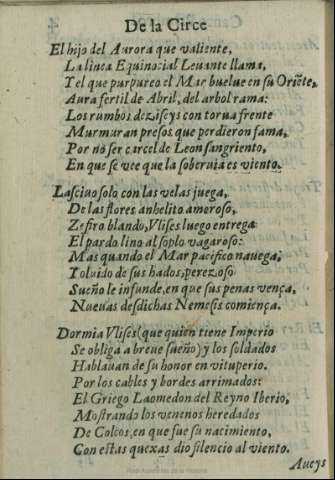 De la Circe
El hijo del Aurora que valiente,
La linea Equinocial Leuante llama,
Y el que purpureo el Mar buelue en su Oriẽte,
Aura fertil de Abril, del arbol rama:
Los rumbos deziseys con torua frente
Murmuran presos que perdieron fama,
Por no ser carcel de Leon sangriento,
En que se vee que la soberuia es viento.
Lasciuo solo con las velas juega,
De las flores anhelito amoroso,
Zefiro blando, Vlises luego entrega
El pardo lino al soplo vagaroso:
Mas quando el Mar pacifico nauega,
Y oluido de sus hados, perezoso
Sueño le infunde, en que sus penas vença,
Nueuas desdichas Nemesis comiença.
Dormia Vlises (que quien tiene Imperio
Se obliga a breue sueño) y los soldados
Hablauan de su honor en vituperio.
Por los cables y bordes arrimados:
El Griego Laomedon del Reyno Iberio,
Mostrando los venenos heredados
De Colcos, en que fue su nacimiento,
Con estas quexas dio silencio al viento.
Aueys